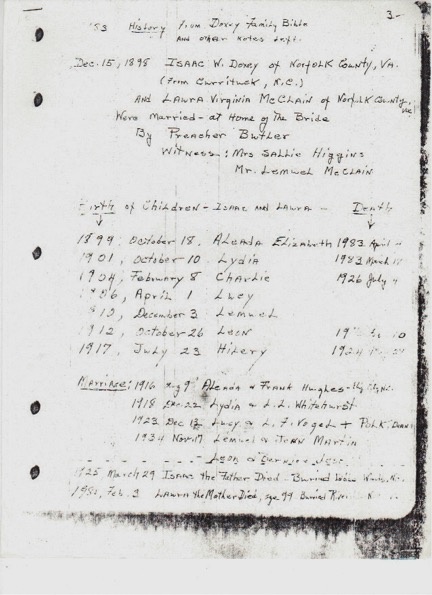 3
83 History from Doxey Family Bible
and other notes kept.
Dec. 15, 1898 Isaac W. Doxey of Norfolk County, Va.
(From Currituck, N.C.)
And Laura Virginia McClain of Norfolk County, Va
Were Married - at Home of the Bride
By Preacher Butler
Witness: Mrs Sallie Higgins
Mr. Lemuel McClain
Birth of Children - Isaac and Laura - Death
1899, October 18, Aleada Elizabeth 1983 April
1901, October 10 Lydia 1983 March
1904, February 8 Charlie 1926 July 4
1906, April 1 Lucy
1910, December 3 Lemuel
1912, October 26 Leon
1917, July 23 Hilery 1924
Marriage: 1916 Aug 9 Aleada & Frank Hughes
1918 Dec. 22 Lydia & L.L. Whitehurst
1923 Dec 13 Lucy & L. F. Vogel + Polk
1934 Nov 17 Lemuel & Joan Martin
Leon &
1925 March 29 Isaac the Father Died - Buried
Feb. 3 Laura the Mother Died, age 99 Buried